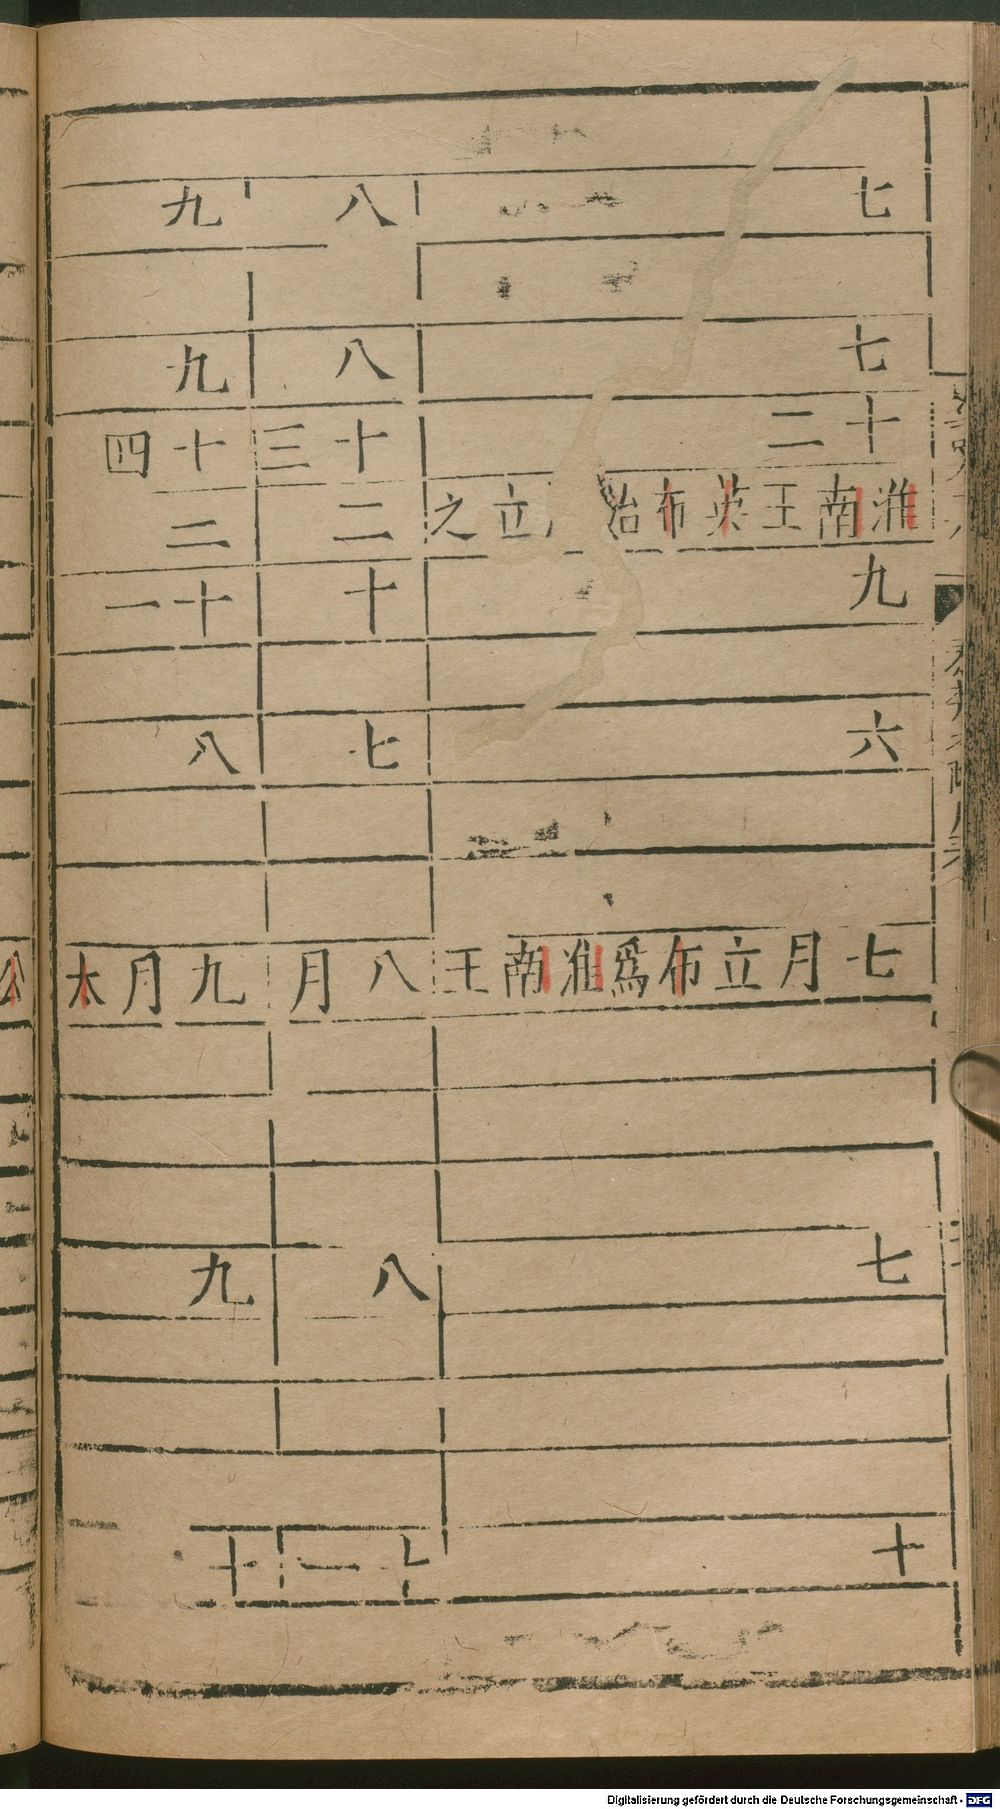 七
七
十二
淮南王英布始
立之
九
六
七月立布爲淮南王
七
十
八
八
十三
二
十
七
八月
八
十一
九
九
十四
二
十一
八
九月太
九
十
Digitalisierung gefördert durch die Deutsche Forschungsgemeinschaft - DFG